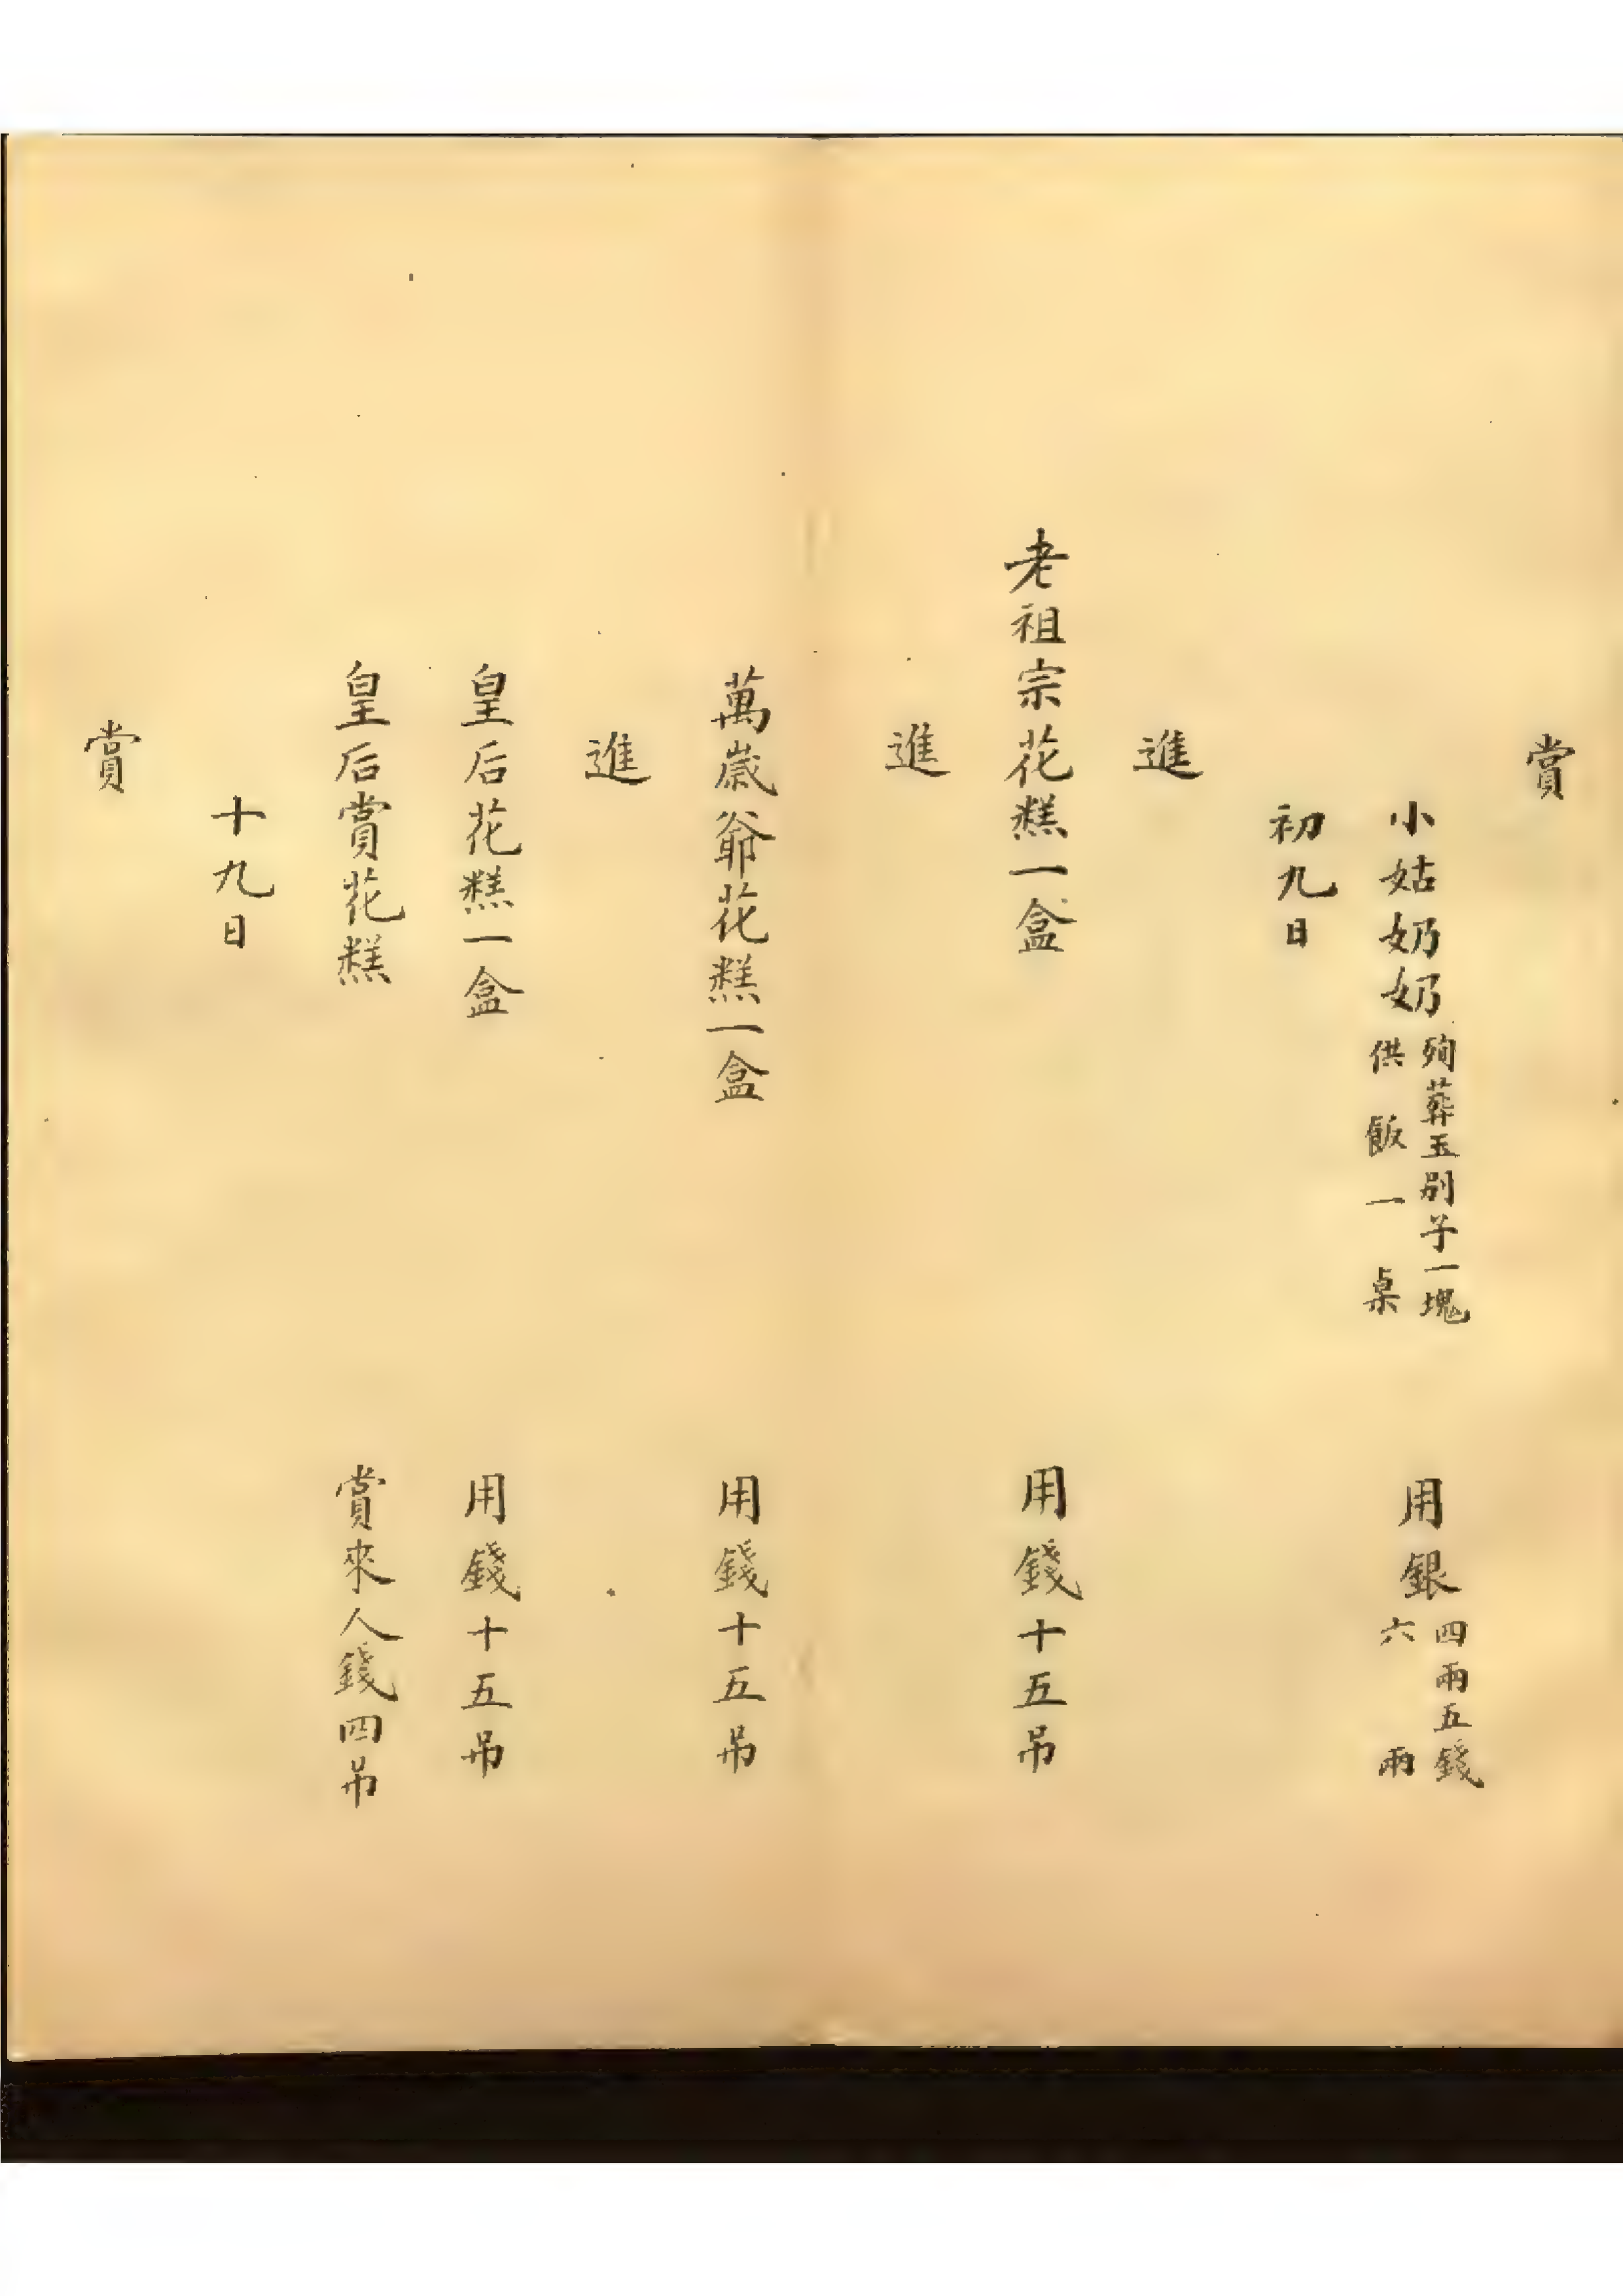 賞
小姑奶奶 殉葬玉別子一塊 供飯一桌 用銀 四兩五錢 六兩
初九日
進
老祖宗花糕一盒 用錢十五吊
進
萬歲爺花糕一盒 用錢十五吊
進
皇后花糕一盒 用錢十五吊
皇后賞花糕 賞來人錢四吊
十九日
賞